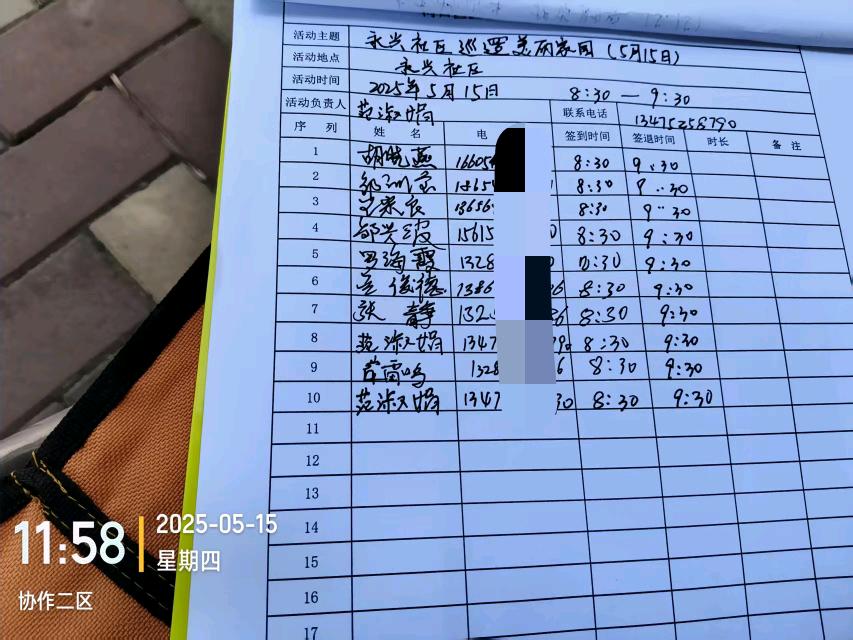 活动主题 永兴社区巡逻美丽家园(5月15日)
活动地点 永兴社区
活动时间 2025年5月15日 8:30 — 9:30
活动负责人 范淑娟 联系电话 13475258790
序 列 姓 名 电 签到时间 签退时间 时长 备 注
1 胡晓燕 16605 8:30 9:30
2 1865 8:30 9:30
3 13656 8:30 9:30
4 1561 0 8:30 9:30
5 罗海霞 1328 8:30 9:30
6 俊德 1386 6 8:30 9:30
7 张静 132 86 8:30 9:30
8 范淑娟 1347 8:30 9:30
9 1328 6 8:30 9:30
10 范淑娟 1347 30 8:30 9:30
11
12
13
14
15
16
17
11:58 2025-05-15
星期四
协作二区